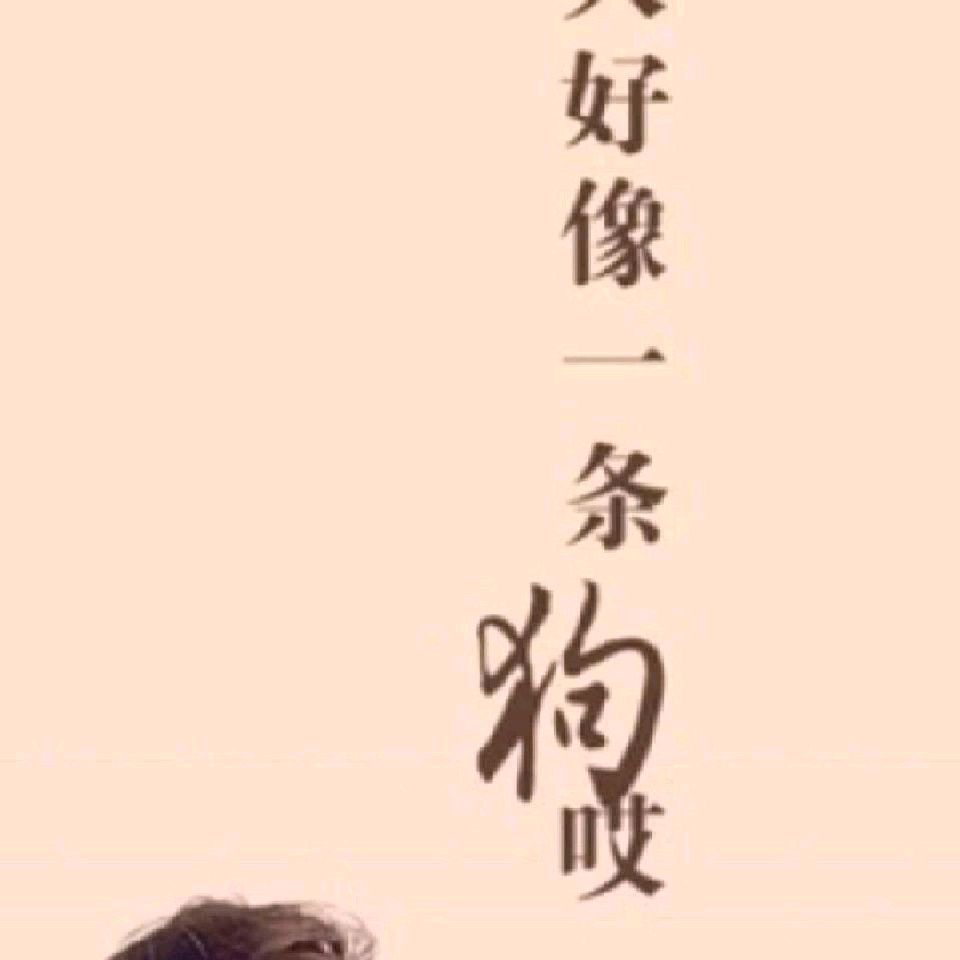 好像一条狗哎